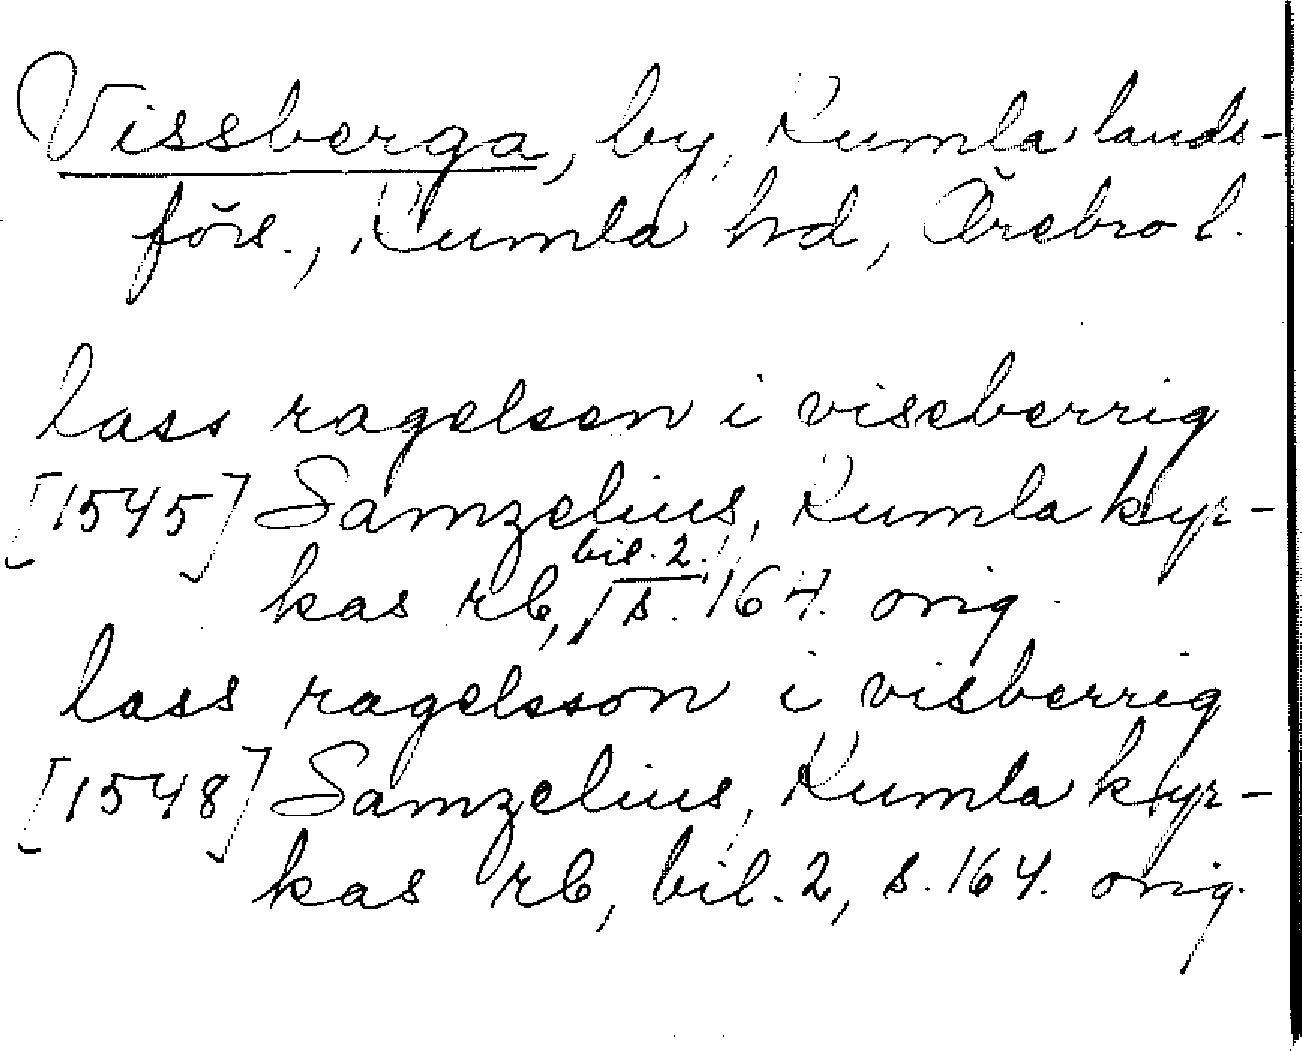 Vissberga, by, Kumla lands-
förs., Kumla hd, Örebro l.
lass ragelsen i viseberrig
[1545] Samzelius, Kumla kyr-
kas rb, bil. 2. s. 164. orig.
lass ragelsson i visberrig
[1548] Samzelius, Kumla kyr-
kas rb, bil. 2, s. 164. orig.